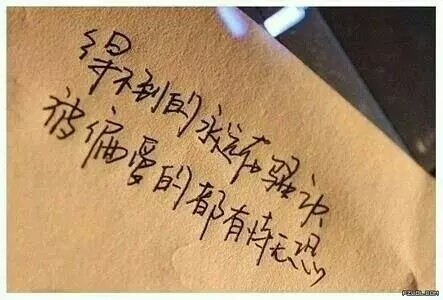 得不到的永远在骚动
被偏爱的都有恃无恐
PZUDL.COM